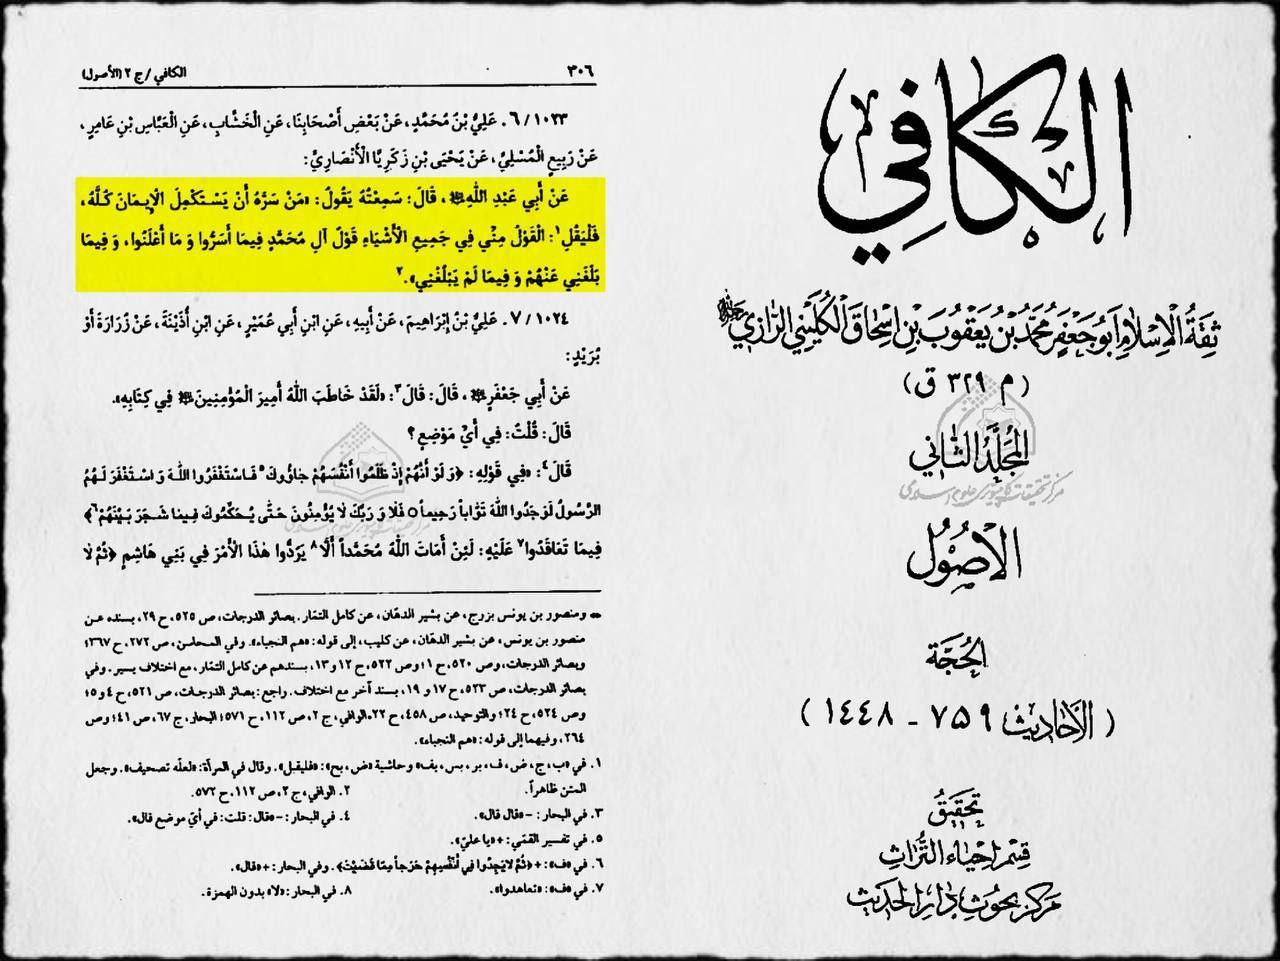 الكافي
ثِقَةُ الْإِسْلَامِ أَبُو جَعْفَرٍ مُحَمَّدُ بْنُ يَعْقُوبَ بْنِ إِسْحَاقَ الْكُلَيْنِيِّ الرَّازِيِّ
(م ٣٢٩ ق)
المُجَلَّدُ الثَّانِي
مركز تحقيقات كامپيوترى علوم اسلامى
الأُصُولُ
الحُجَّة
(الأَحَادِيث ٧٥٩ - ١٤٤٨)
تَحْقِيقُ
قِسْمِ إحْيَاءِ التُّرَاثِ
مَرْكَزِ بُحُوثِ دَارِ الْحَدِيثِ
٣٠٦ الكافي / ج ٢ (الأصول)
١٠٢٣ / ٦ . عَلِيُّ بْنُ مُحَمَّدٍ، عَنْ بَعْضِ أَصْحَابِنَا، عَنِ الْخَشَّابِ، عَنِ الْعَبَّاسِ بْنِ عَامِرٍ،
عَنْ رَبِيعٍ الْمُسْلِيِّ، عَنْ يَحْيَى بْنِ زَكَرِيَّا الْأَنْصَارِيِّ:
عَنْ أَبِي عَبْدِ اللّٰهِ ﷺ، قَالَ: سَمِعْتُهُ يَقُولُ: «مَنْ سَرَّهُ أَنْ يَسْتَكْمِلَ الْإِيمَانَ كُلَّهُ،
فَلْيَقُلِ١: الْقَوْلُ مِنِّي فِي جَمِيعِ الْأَشْيَاءِ قَوْلُ آلِ مُحَمَّدٍ فِيمَا أَسَرُّوا وَ مَا أَعْلَنُوا، وَ فِيمَا
بَلَغَنِي عَنْهُمْ وَ فِيمَا لَمْ يَبْلُغْنِي».٢
١٠٢٤ / ٧ . عَلِيُّ بْنُ إِبْرَاهِيمَ، عَنْ أَبِيهِ، عَنِ ابْنِ أَبِي عُمَيْرٍ، عَنِ ابْنِ أُذَيْنَةَ، عَنْ زُرَارَةَ أَوْ
بُرَيْدٍ:
عَنْ أَبِي جَعْفَرٍ ﷺ، قَالَ: قَالَ٣: «لَقَدْ خَاطَبَ اللّٰهُ أَمِيرَ الْمُؤْمِنِينَ ﷺ فِي كِتَابِهِ».
قَالَ: قُلْتُ: فِي أَيِّ مَوْضِعٍ؟
قَالَ٤: «فِي قَوْلِهِ: ﴿وَ لَوْ أَنَّهُمْ إِذْ ظَلَمُوا أَنْفُسَهُمْ جَاؤُوكَ٥ فَاسْتَغْفَرُوا اللّٰهَ وَ اسْتَغْفَرَ لَهُمُ
الرَّسُولُ لَوَجَدُوا اللّٰهَ تَوَّاباً رَحِيماً ○ فَلَا وَ رَبِّكَ لَا يُؤْمِنُونَ حَتَّى يُحَكِّمُوكَ فِيمَا شَجَرَ بَيْنَهُمْ﴾٦
فِيمَا تَعَاقَدُوا٧ عَلَيْهِ: لَئِنْ أَمَاتَ اللّٰهُ مُحَمَّداً أَلَّا٨ يَرُدُّوا هٰذَا الْأَمْرَ فِي بَنِي هَاشِمٍ ﴿ثُمَّ لَا
ومنصور بن يونس بزرج، عن بشير الدهّان، عن كامل التمّار. بصائر الدرجات، ص ٥٢٥، ح ٢٩، بسنده عن
منصور بن يونس، عن بشير الدهّان، عن كليب، إلى قوله: «هم النجباء». وفي المحاسن، ص ٢٧٢، ح ٣٦٧؛
وبصائر الدرجات، ص ٥٢٠، ح ١؛ وص ٥٢٢، ح ١٢ و ١٣، بسندهم عن كامل التمّار، مع اختلاف يسير. وفي
بصائر الدرجات، ص ٥٢٣، ح ١٧ و ١٩، بسند آخر مع اختلاف. راجع: بصائر الدرجات، ص ٥٢١، ح ٤ و ٥؛
وص ٥٢٤، ح ٢٤؛ والتوحيد، ص ٤٥٨، ح ٢٢. الوافي، ج ٢، ص ١١٢، ح ٥٧١؛ البحار، ج ٦٧، ص ٤١؛ وص
٢٦٤، وفيهما إلى قوله: «هم النجباء».
١. في «ب، ج، ض، ف، بر، بس، بف» وحاشية «ض، بح»: «فليقبل». وقال في المرآة: «لعلّه تصحيف». وجعل
المتن ظاهراً. ٢. الوافي، ج ٢، ص ١١٢، ح ٥٧٢.
٣. في البحار: - «قال قال». ٤. في البحار: - «قال: قلت: في أيّ موضع قال».
٥. في تفسير القمّي: + «يا عليّ».
٦. في «ف»: + ﴿ثُمَّ لَا يَجِدُوا فِي أَنْفُسِهِمْ حَرَجاً مِمَّا قَضَيْتَ﴾. وفي البحار: + «قال».
٧. في «ف»: «تعاهدوا». ٨. في البحار: «لا» بدون الهمزة.